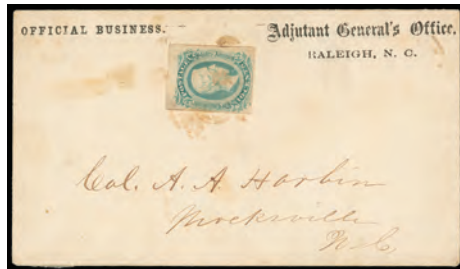 OFFICIAL BUSINESS.
Adjutant General's Office.
RALEIGH, N. C.
Col. A. A. Harbin
Mocksville
N.C.